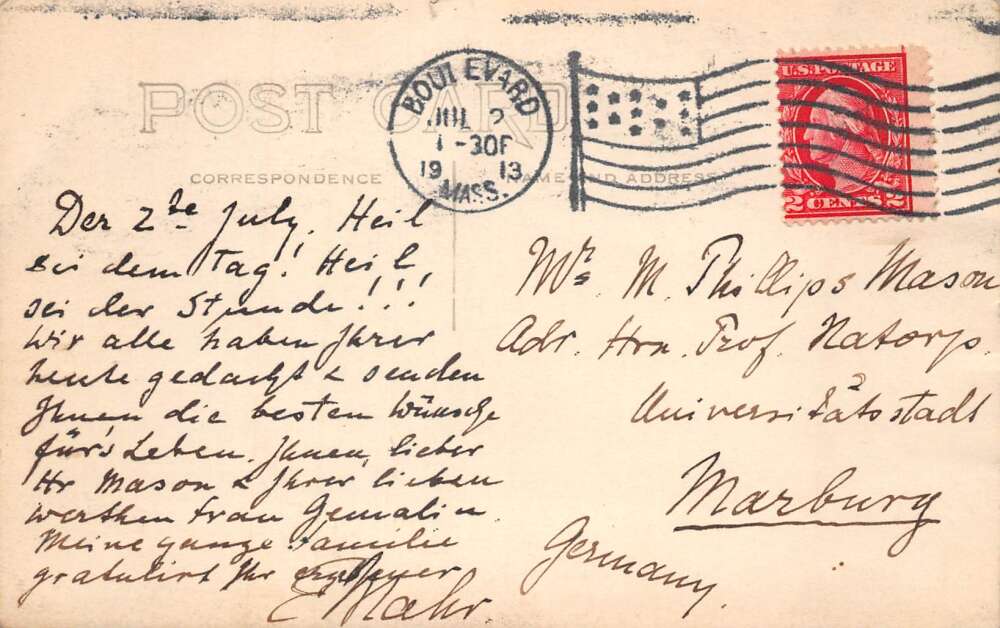 POST CARD
CORRESPONDENCE
NAME AND ADDRESS
BOULEVARD
JUL 2
1-30P
19 13
MASS.
U.S. POSTAGE
2 CENTS 2
Der 2te July. Heil
sei dem Tag! Heil,
sei der Stunde!!!
Wir alle haben Ihrer
heute gedacht & senden
Ihnen die besten Wünsche
für's Leben. Ihnen, lieber
Hr Mason & Ihrer lieben
werthen Frau Gemalin.
Meine ganze Familie
gratulirt Ihr ergebener
E Mahr.
Mr. M. Phillips Mason
Adr. Hrn. Prof. Natorp.
Universitätsstadt
Marburg
Germany.